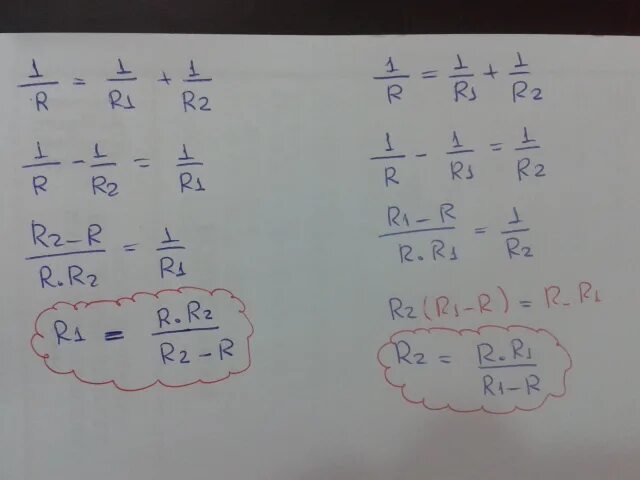 1/R = 1/R1 + 1/R2
1/R - 1/R2 = 1/R1
R2-R/R.R2 = 1/R1
R1 = R.R2/R2-R
1/R = 1/R1 + 1/R2
1/R - 1/R1 = 1/R2
R1-R/R.R1 = 1/R2
R2(R1-R) = R-R1
R2 = R.R1/R1-R